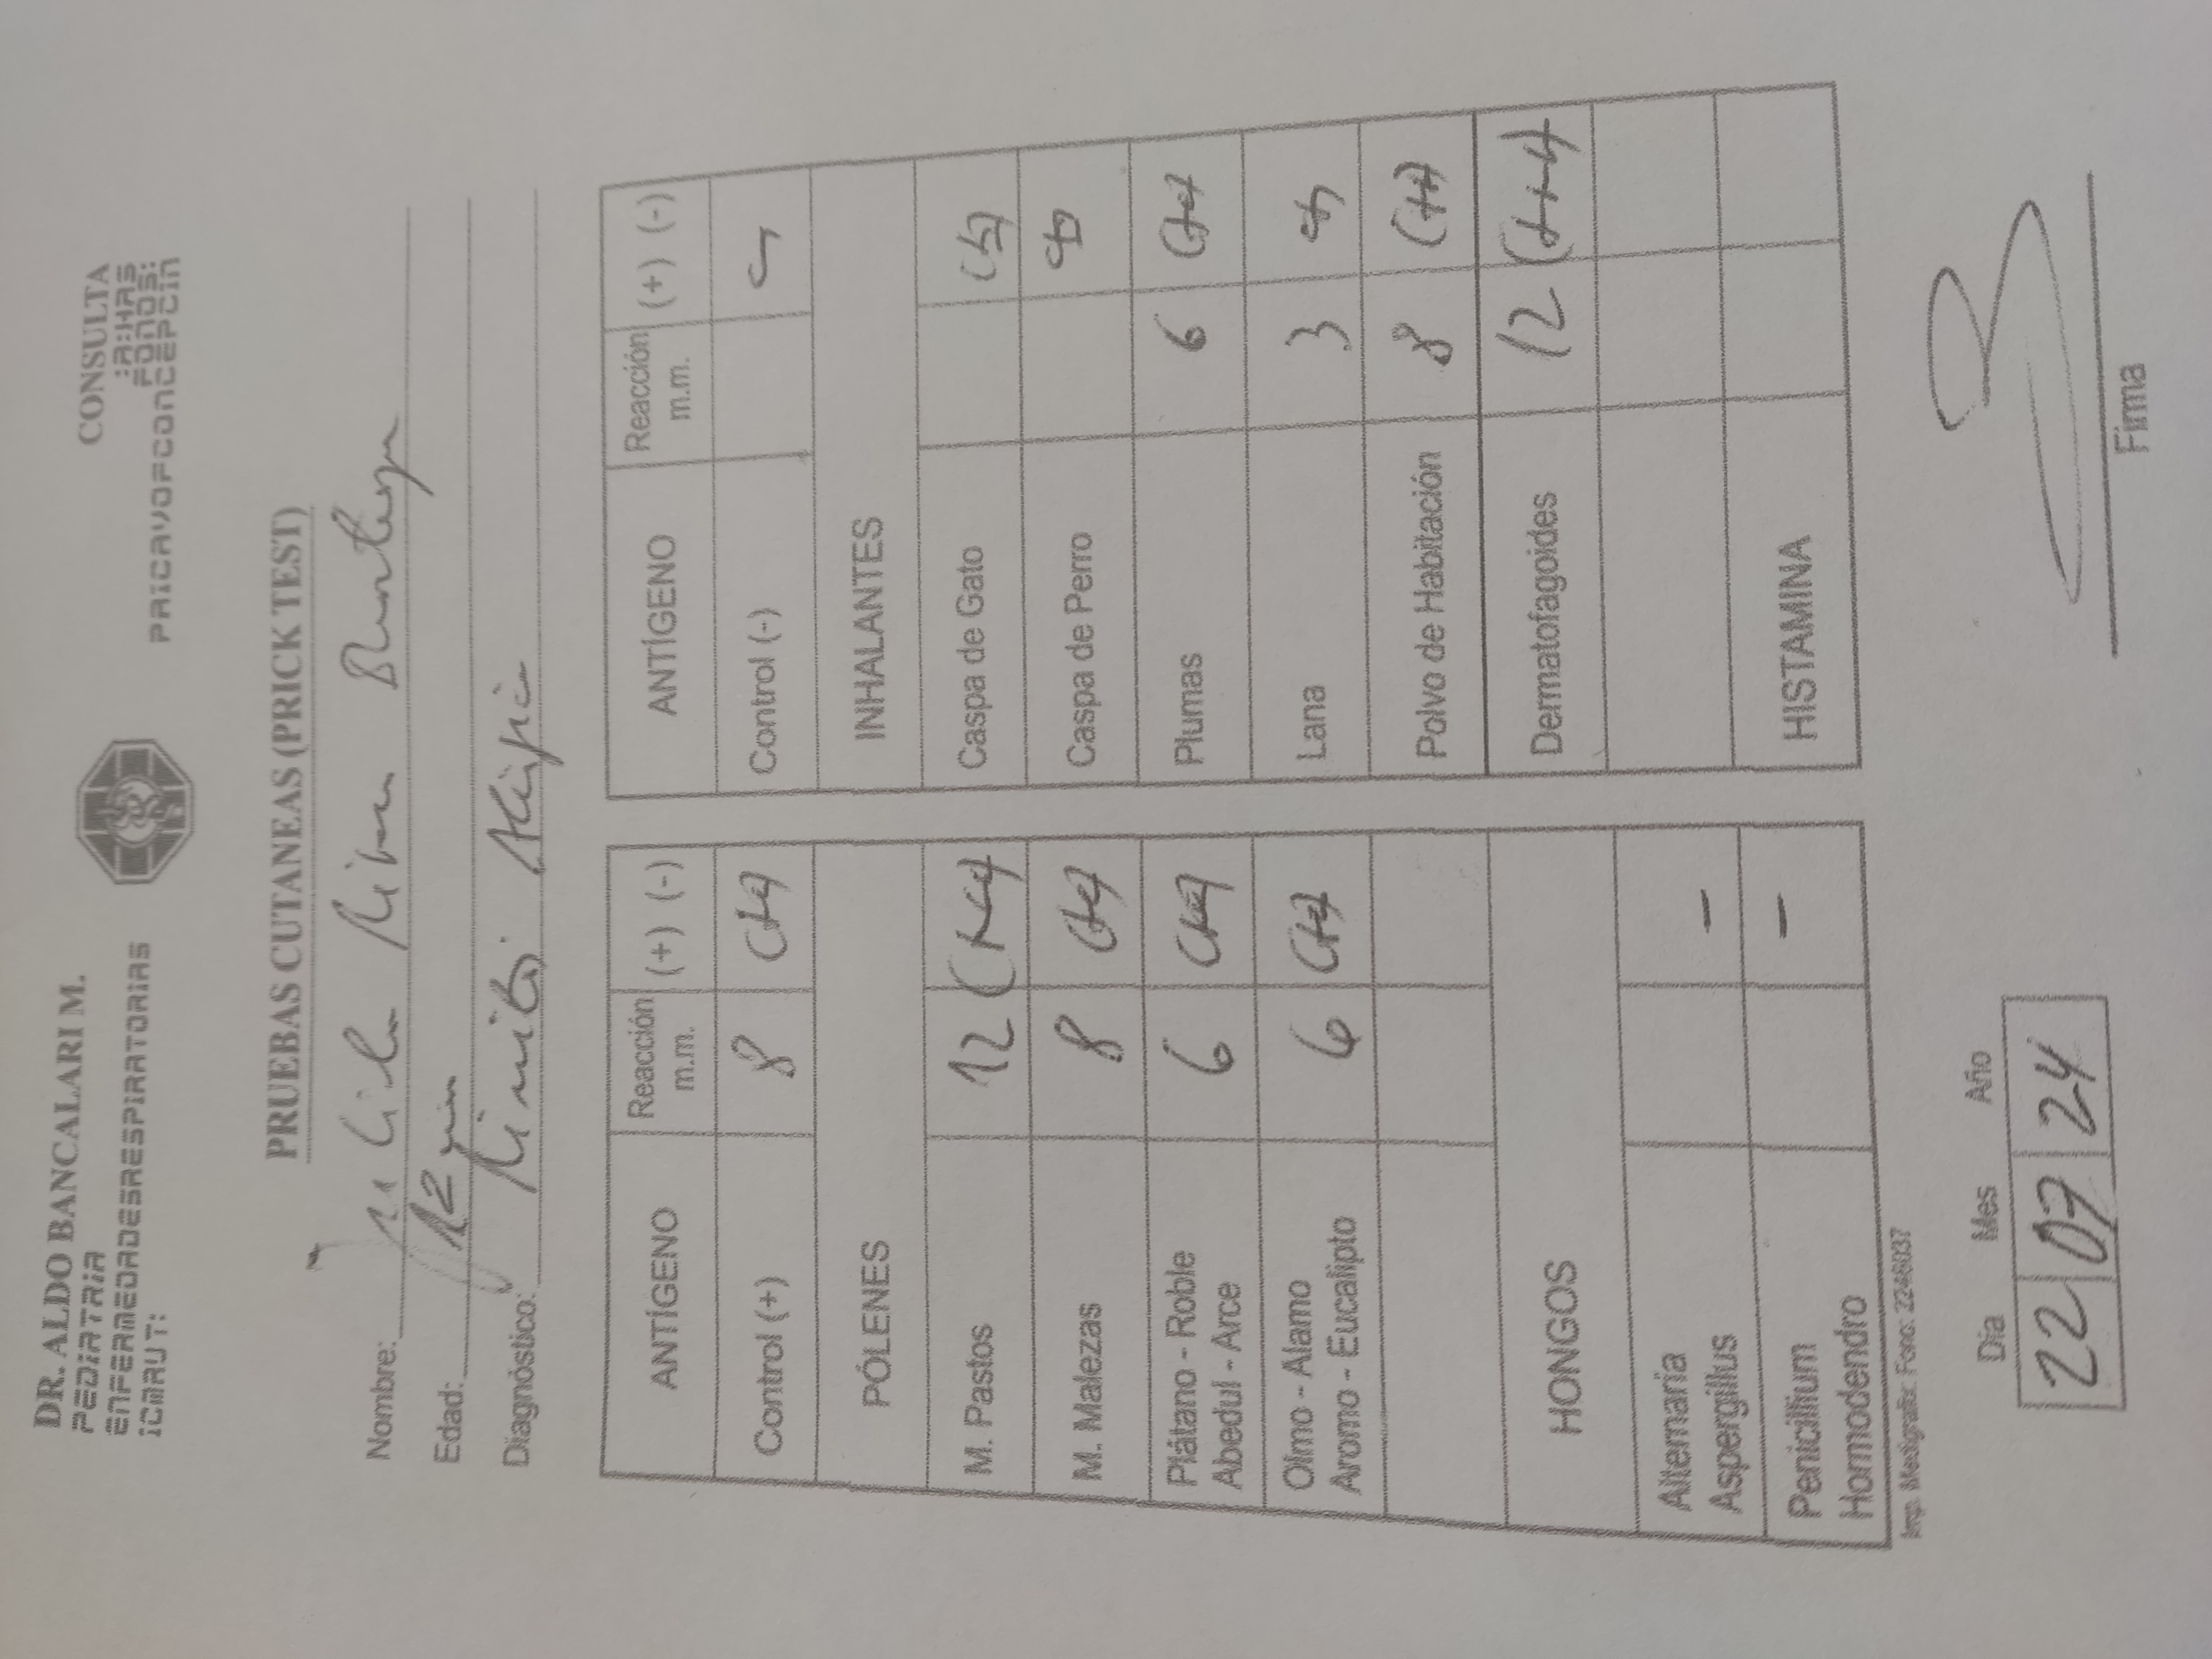 DR. ALDO BANCALARI M.
PEDIATRIA
ENFERMEDADES RESPIRATORIAS
ICM RUT:
CONSULTA
FONOS:
PRUEBAS CUTANEAS (PRICK TEST)
Nombre:
Edad: 12
Diagnóstico: Rinitis Alérgica
ANTÍGENO Reacción m.m. (+) (-)
Control (+) 8 (++)
PÓLENES
M. Pastos 12 (+++)
M. Malezas 8 (++)
Plátano - Roble 6 (++)
Abedul - Arce
Olmo - Alamo 6 (++)
Aromo - Eucalipto
HONGOS
Alternaria -
Aspergillus
Penicillium -
Homodendro
Imp. Medigrafic Fono: 2246037
ANTÍGENO Reacción m.m. (+) (-)
Control (-)
INHALANTES
Caspa de Gato
Caspa de Perro
Plumas 6 (++)
Lana 3
Polvo de Habitación 8 (++)
Dermatofagoides 12 (+++)
HISTAMINA
Día Mes Año
22 07 24
Firma